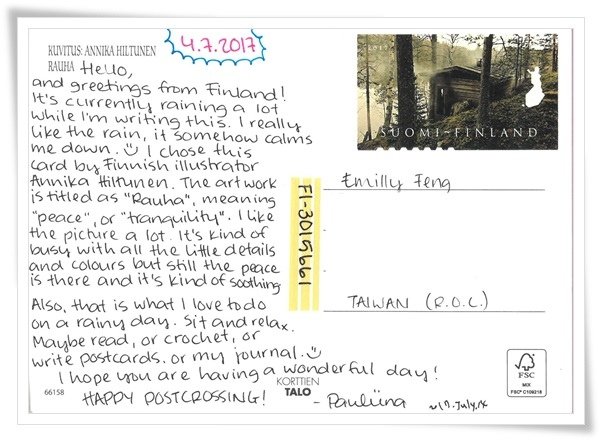 KUVITUS: ANNIKA HILTUNEN
RAUHA
4.7.2017
Hello,
and greetings from Finland!
It's currently raining a lot
while I'm writing this. I really
like the rain, it somehow calms
me down. I chose this
card by Finnish illustrator
Annika Hiltunen. The artwork
is titled as "Rauha", meaning
"peace", or "tranquility". I like
the picture a lot. It's kind of
busy with all the little details
and colours but still the peace
is there and it's kind of soothing
Also, that is what I love to do
on a rainy day. Sit and relax.
Maybe read, or crochet, or
write postcards, or my journal.
I hope you are having a wonderful day!
HAPPY POSTCROSSING! - Pauliina
66158
KORTTIEN
TALO
FI-3015661
2017
SUOMI-FINLAND
Emilly Feng
TAIWAN (R.O.C.)
FSC
MIX
FSC® C109218